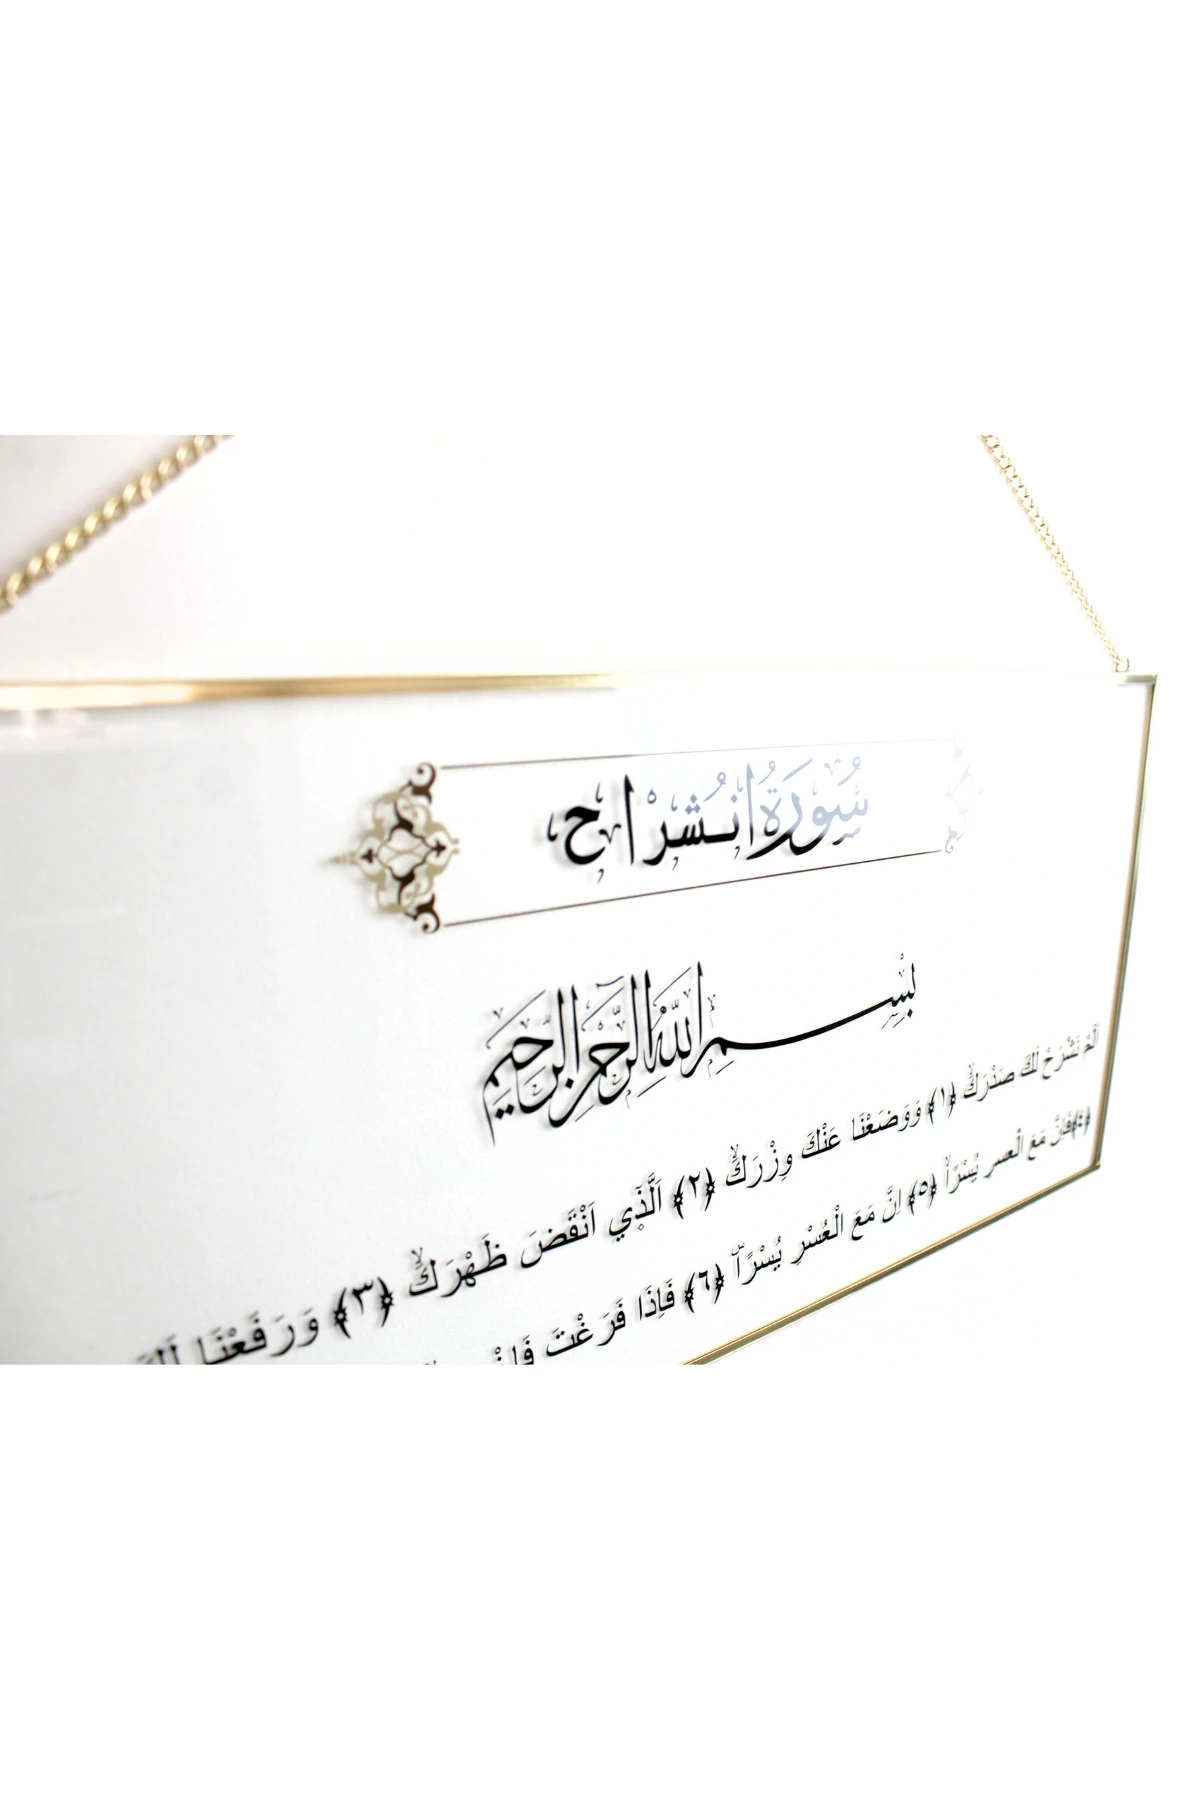 سُورَةُ انْشِرَاح
بِسْمِ اللّٰهِ الرَّحْمٰنِ الرَّحِيمِ
اَلَمْ نَشْرَحْ لَكَ صَدْرَكَۙ ﴿١﴾ وَوَضَعْنَا عَنْكَ وِزْرَكَۙ ﴿٢﴾ اَلَّذٓي اَنْقَضَ ظَهْرَكَۙ ﴿٣﴾ وَرَفَعْنَا
﴿٤﴾ فَاِنَّ مَعَ الْعُسْرِ يُسْرًاۙ ﴿٥﴾ اِنَّ مَعَ الْعُسْرِ يُسْرًاۜ ﴿٦﴾ فَاِذَا فَرَغْتَ